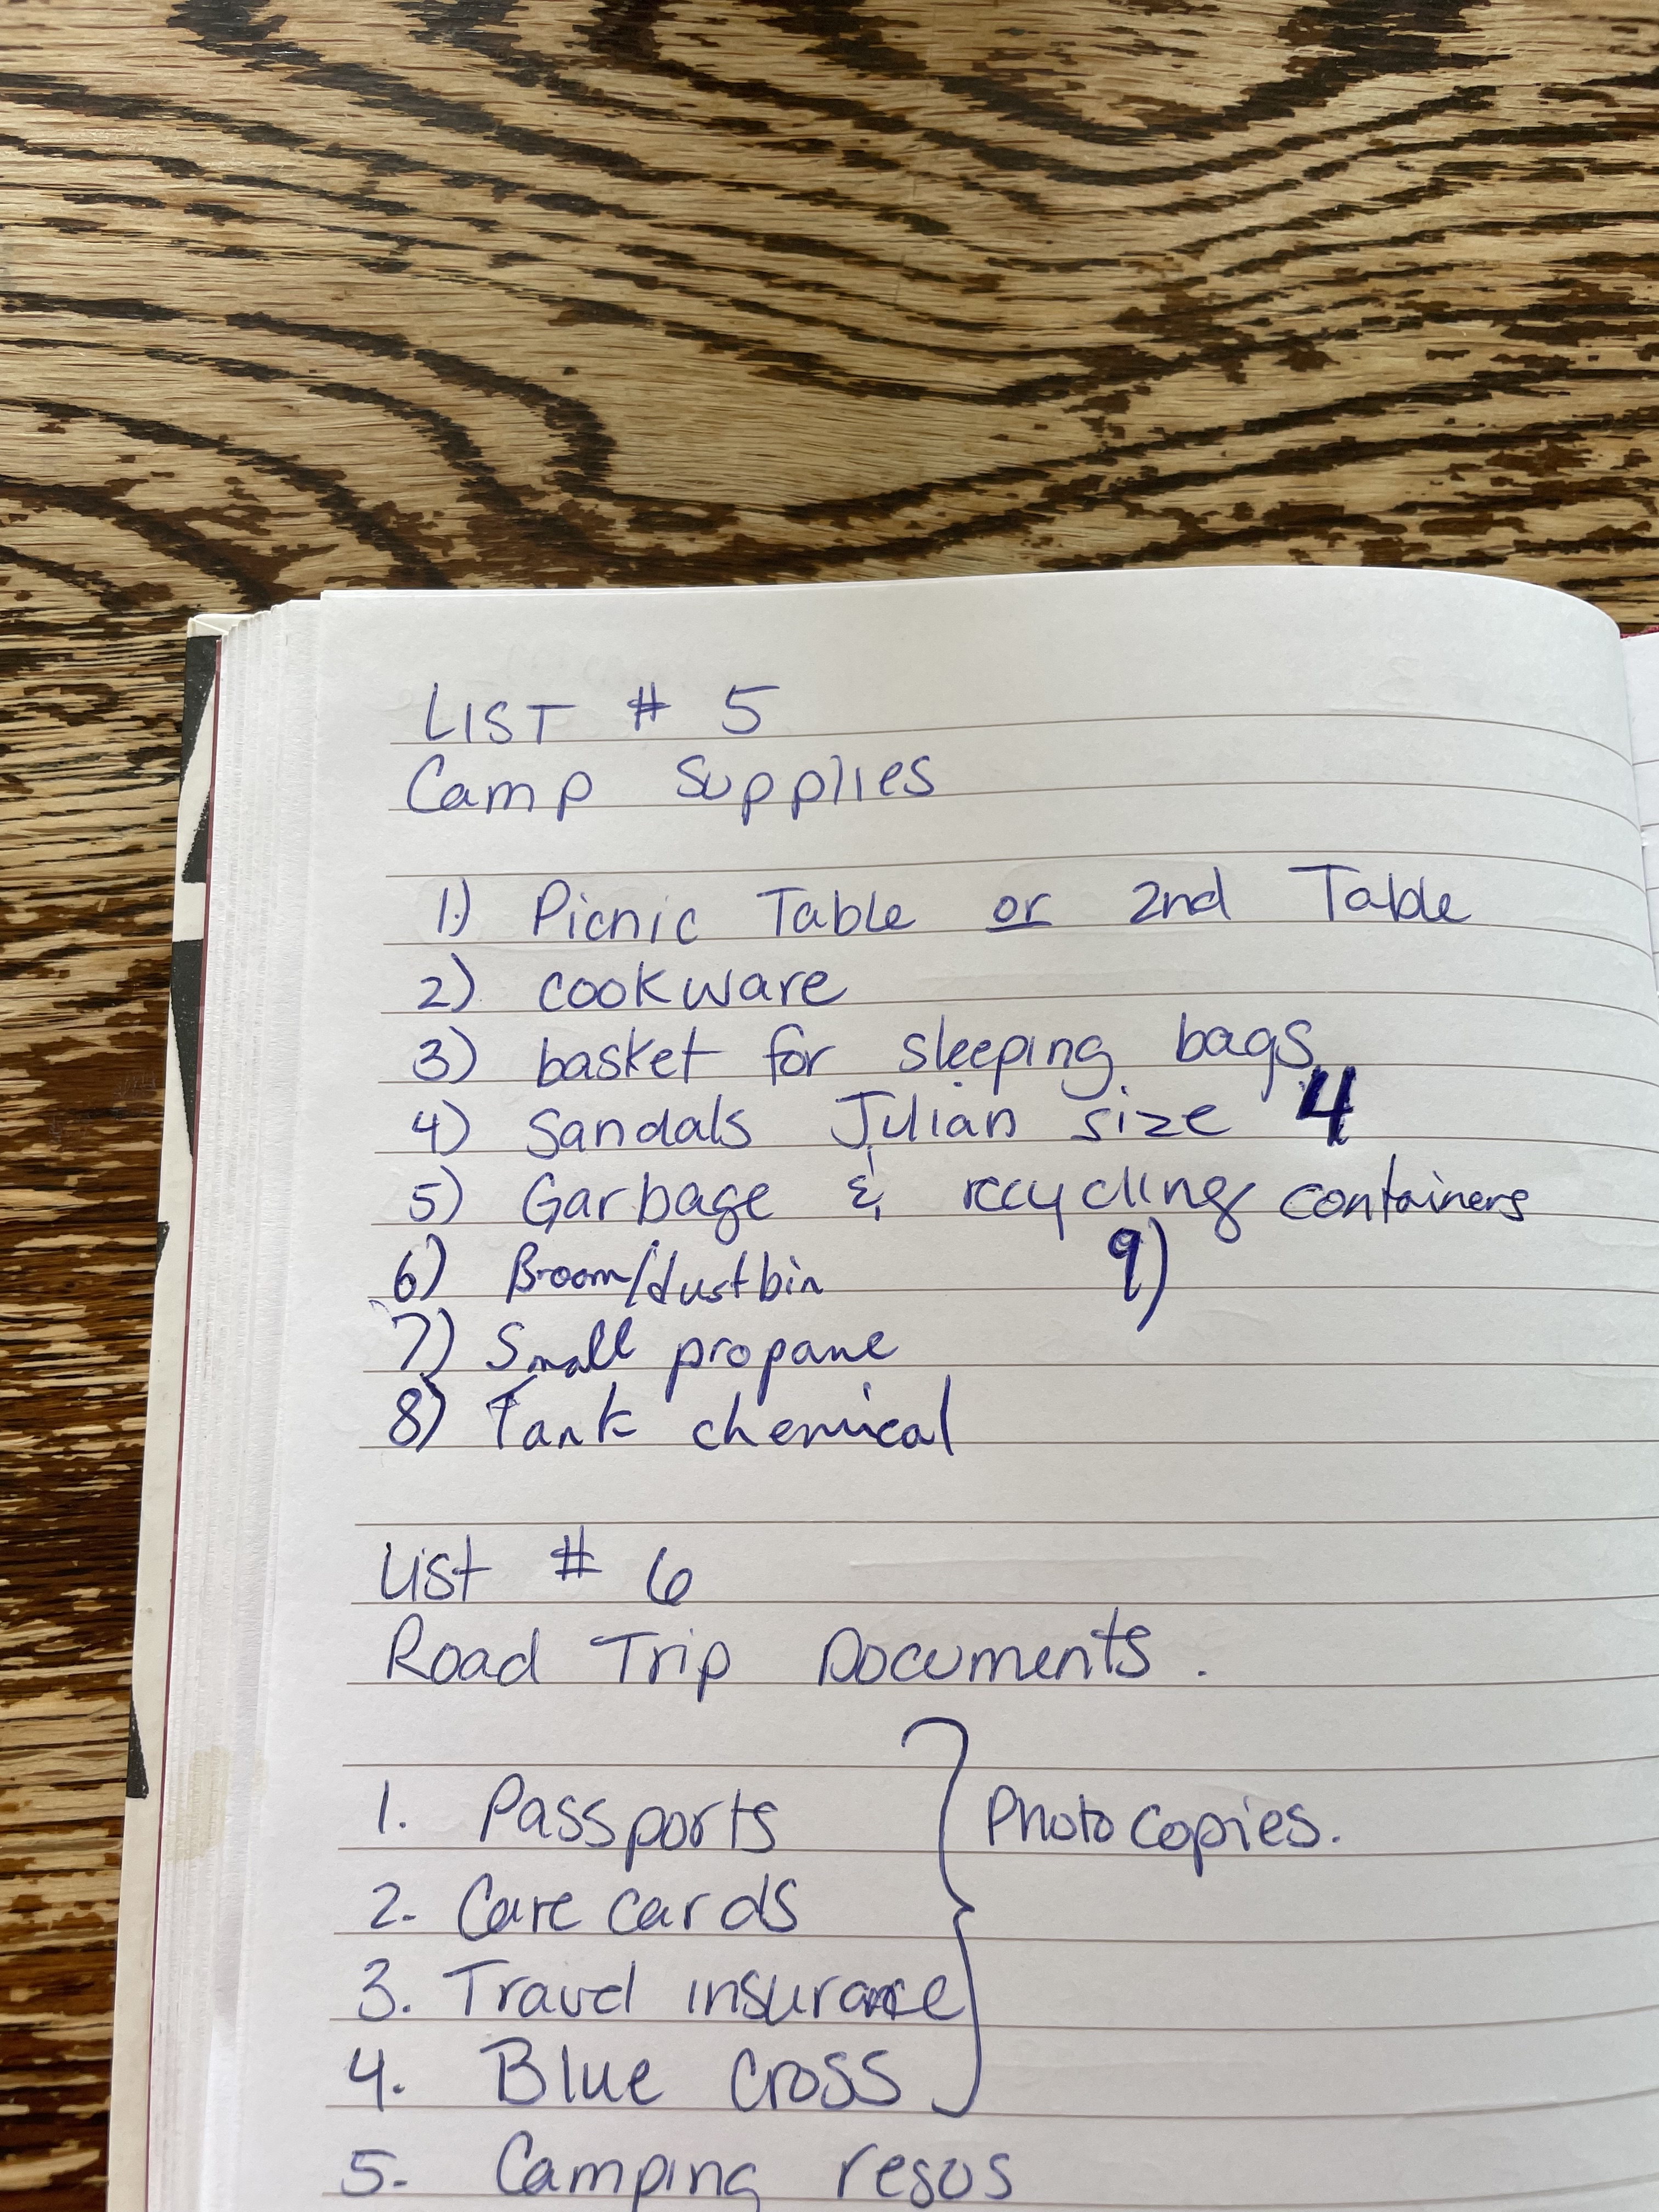 LIST # 5
Camp Supplies
1.) Picnic Table or 2nd Table
2) cookware
3) basket for sleeping bags
4) Sandals Julian size 4
5) Garbage & recycling containers
6) Broom/dustbin
9)
7) Small propane
8) Tank chemical
List # 6
Road Trip Documents.
1. Passports
Photo copies.
2. Care cards
3. Travel insurance
4. Blue cross
5. Camping resos